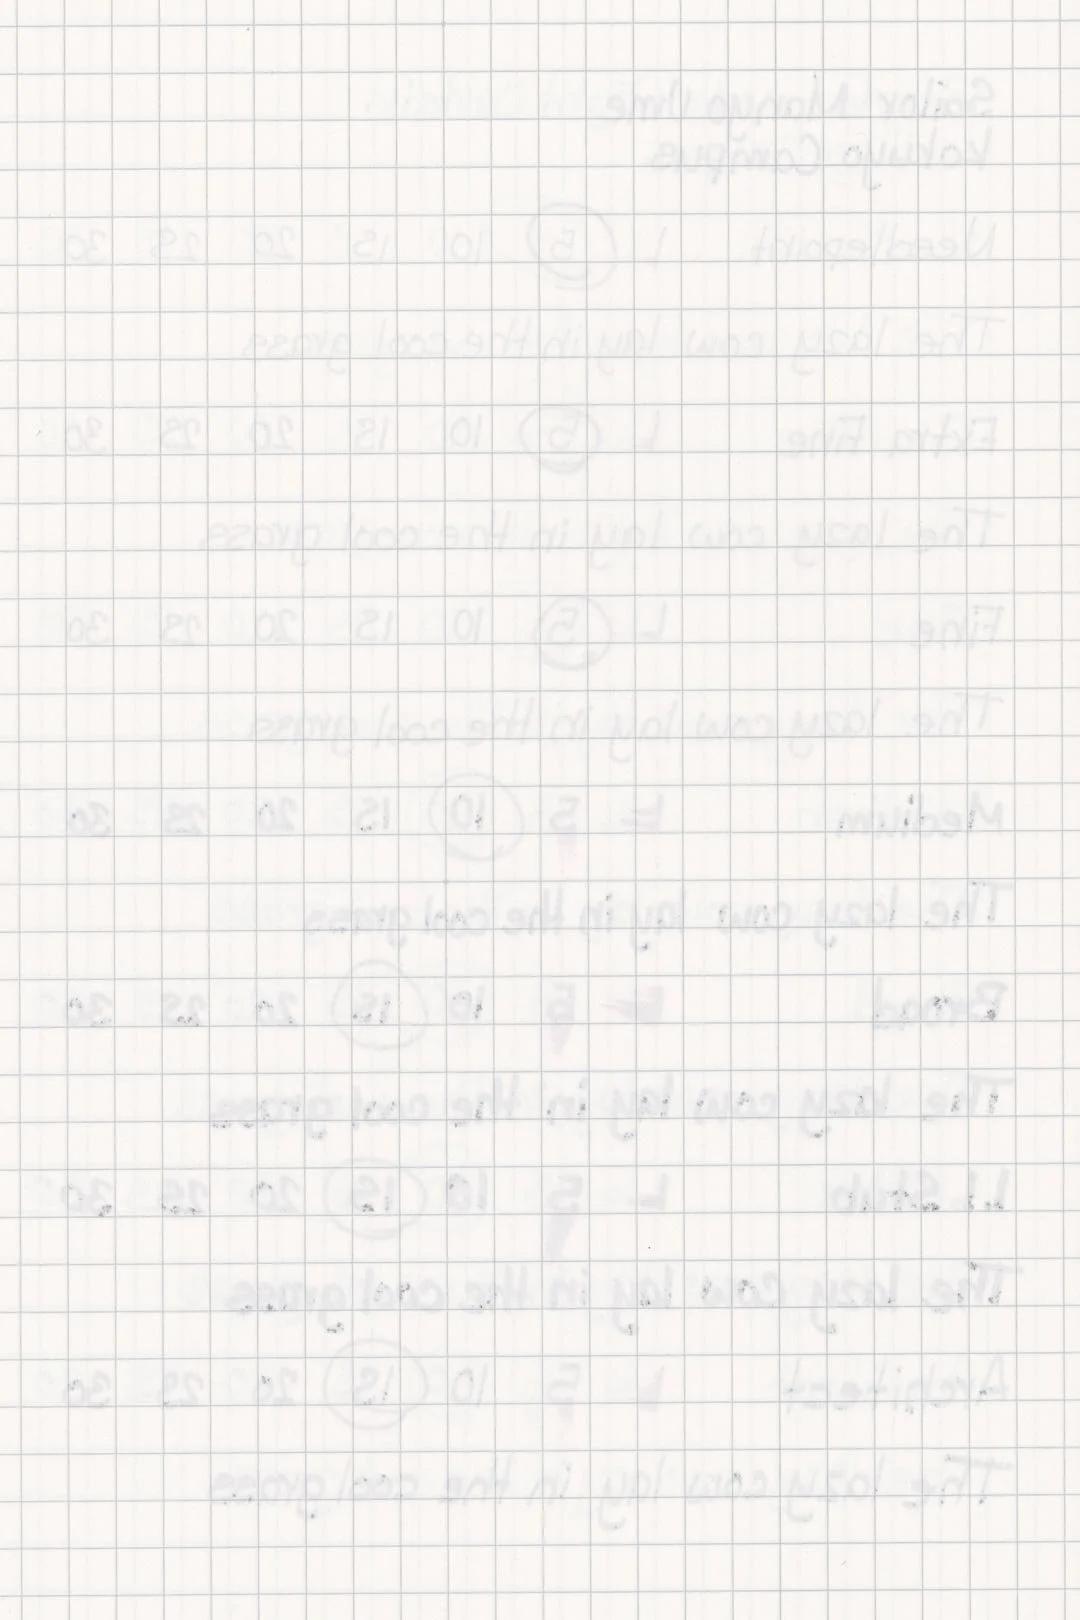 Sailor Manyo Ume
Kokuyo Campus
Needlepoint L 5 10 15 20 25 30
The lazy cow lay in the cool grass
Extra Fine L 5 10 15 20 25 30
The lazy cow lay in the cool grass
Fine L 5 10 15 20 25 30
The lazy cow lay in the cool grass
Medium L 5 10 15 20 25 30
The lazy cow lay in the cool grass
Broad L 5 10 15 20 25 30
The lazy cow lay in the cool grass
1.1 Stub L 5 10 15 20 25 30
The lazy cow lay in the cool grass
Architect L 5 10 15 20 25 30
The lazy cow lay in the cool grass